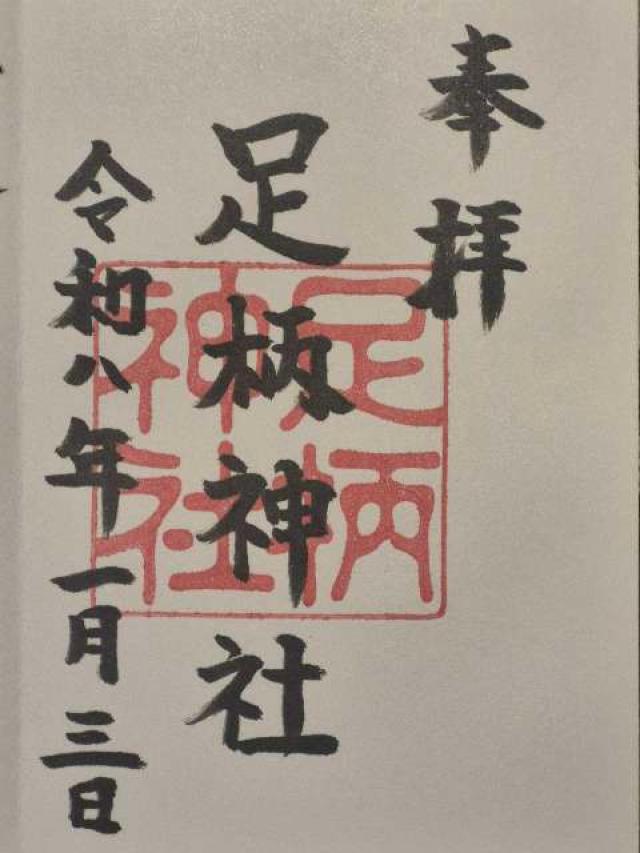 奉拝
足柄神社
令和八年一月三日
足柄
神社